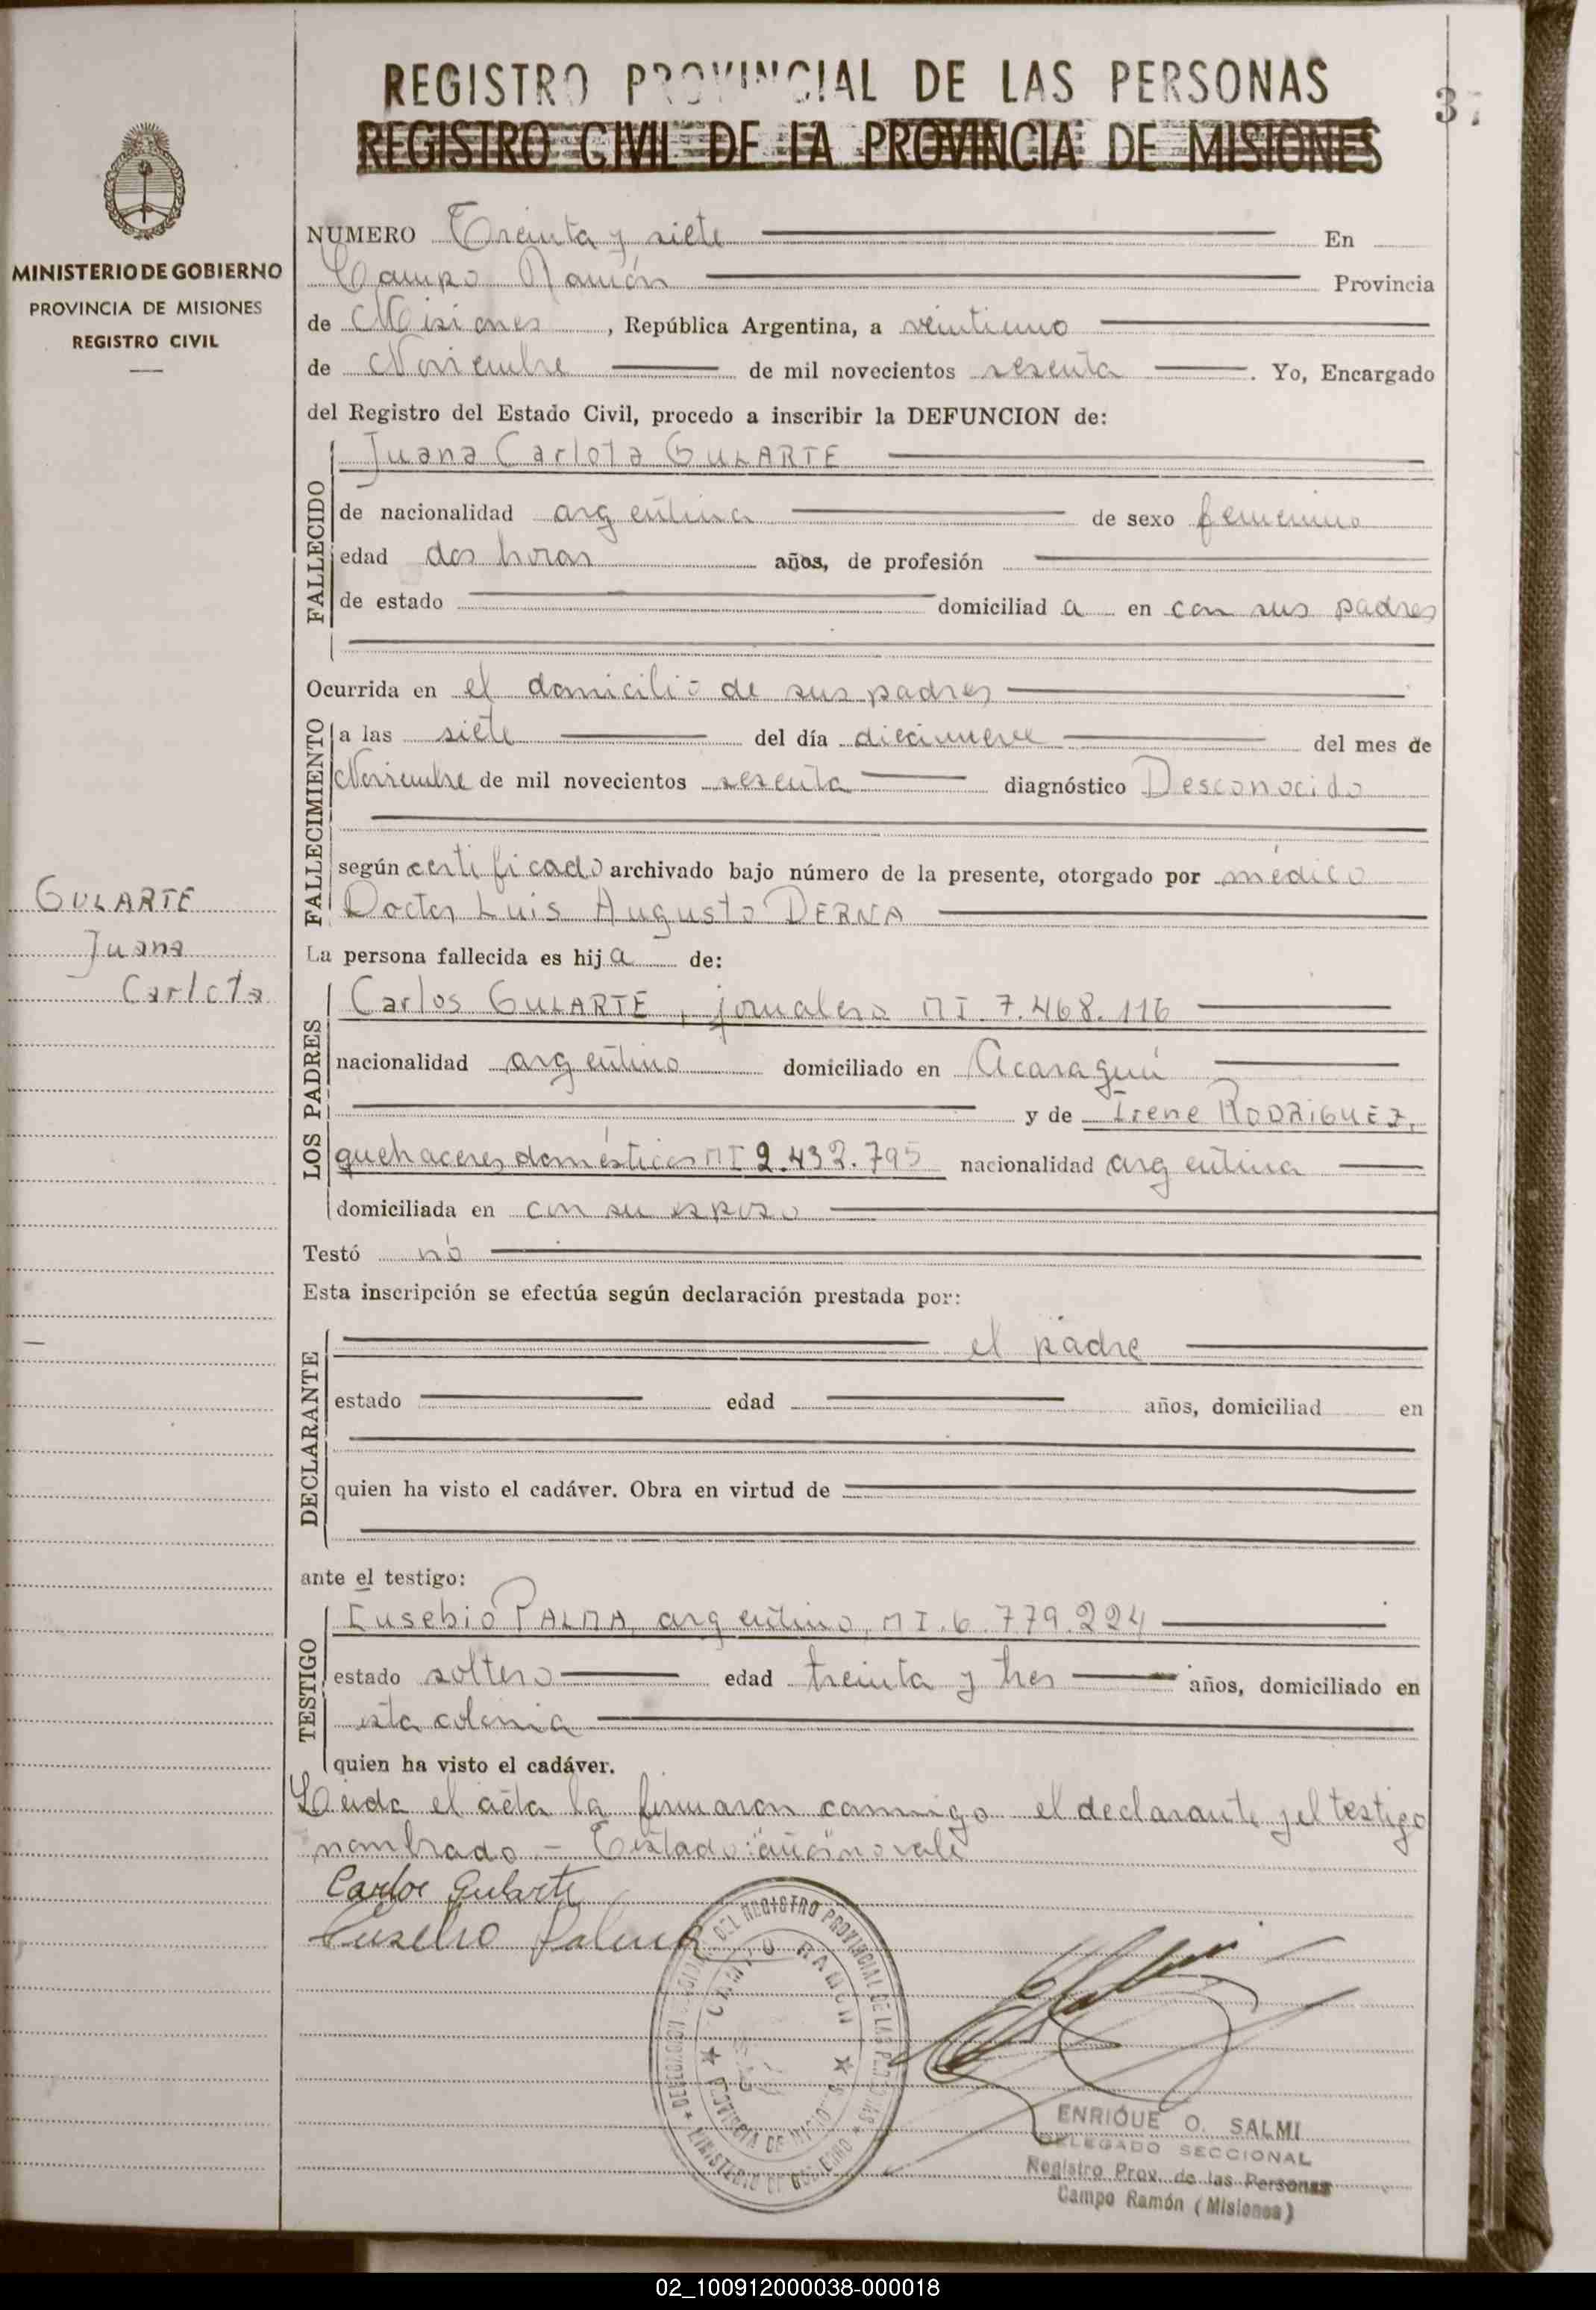 REGISTRO PROVINCIAL DE LAS PERSONAS
37
REGISTRO CIVIL DE LA PROVINCIA DE MISIONES
MINISTERIO DE GOBIERNO
PROVINCIA DE MISIONES
REGISTRO CIVIL
GULARTE
Juana
Carlota
NUMERO Treinta y siete En
Campo Ramón Provincia
de Misiones, República Argentina, a veintiuno
de Noviembre de mil novecientos sesenta. Yo, Encargado
del Registro del Estado Civil, procedo a inscribir la DEFUNCION de:
FALLECIDO
Juana Carlota GULARTE
de nacionalidad argentina de sexo femenino
edad dos horas años, de profesión
de estado domiciliad a en con sus padres
Ocurrida en el domicilio de sus padres
FALLECIMIENTO
a las siete del día diecinueve del mes de
Noviembre de mil novecientos sesenta diagnóstico Desconocido
según certificado archivado bajo número de la presente, otorgado por médico
Doctor Luis Augusto DERNA
La persona fallecida es hij a de:
LOS PADRES
Carlos GULARTE, jornalero MI. 7.468.116
nacionalidad argentino domiciliado en Acaraguá
y de Irene RODRIGUEZ,
quehaceres domésticos MI 2.432.795 nacionalidad argentina
domiciliada en con su esposo
Testó nó
Esta inscripción se efectúa según declaración prestada por:
DECLARANTE
el padre
estado edad años, domiciliad en
quien ha visto el cadáver. Obra en virtud de
ante el testigo:
TESTIGO
Eusebio PALMA, argentino, MI. 6.779.224
estado soltero edad treinta y tres años, domiciliado en
esta colonia
quien ha visto el cadáver.
Leida el acta la firmaron conmigo el declarante y el testigo
nombrado - Testado: "años" no vale
Carlos Gularte
Eusebio Palma
DELEGACION SECCIONAL DEL REGISTRO PROVINCIAL DE LAS PERSONAS
CAMPO RAMON
PROVINCIA DE MISIONES
MINISTERIO DE GOBIERNO
ENRIQUE O. SALMI
DELEGADO SECCIONAL
Registro Prov. de las Personas
Campo Ramón (Misiones)
02_100912000038-000018